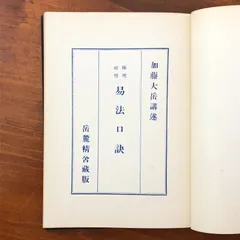 加藤大岳講述
易法口訣
岳麓精舍藏版